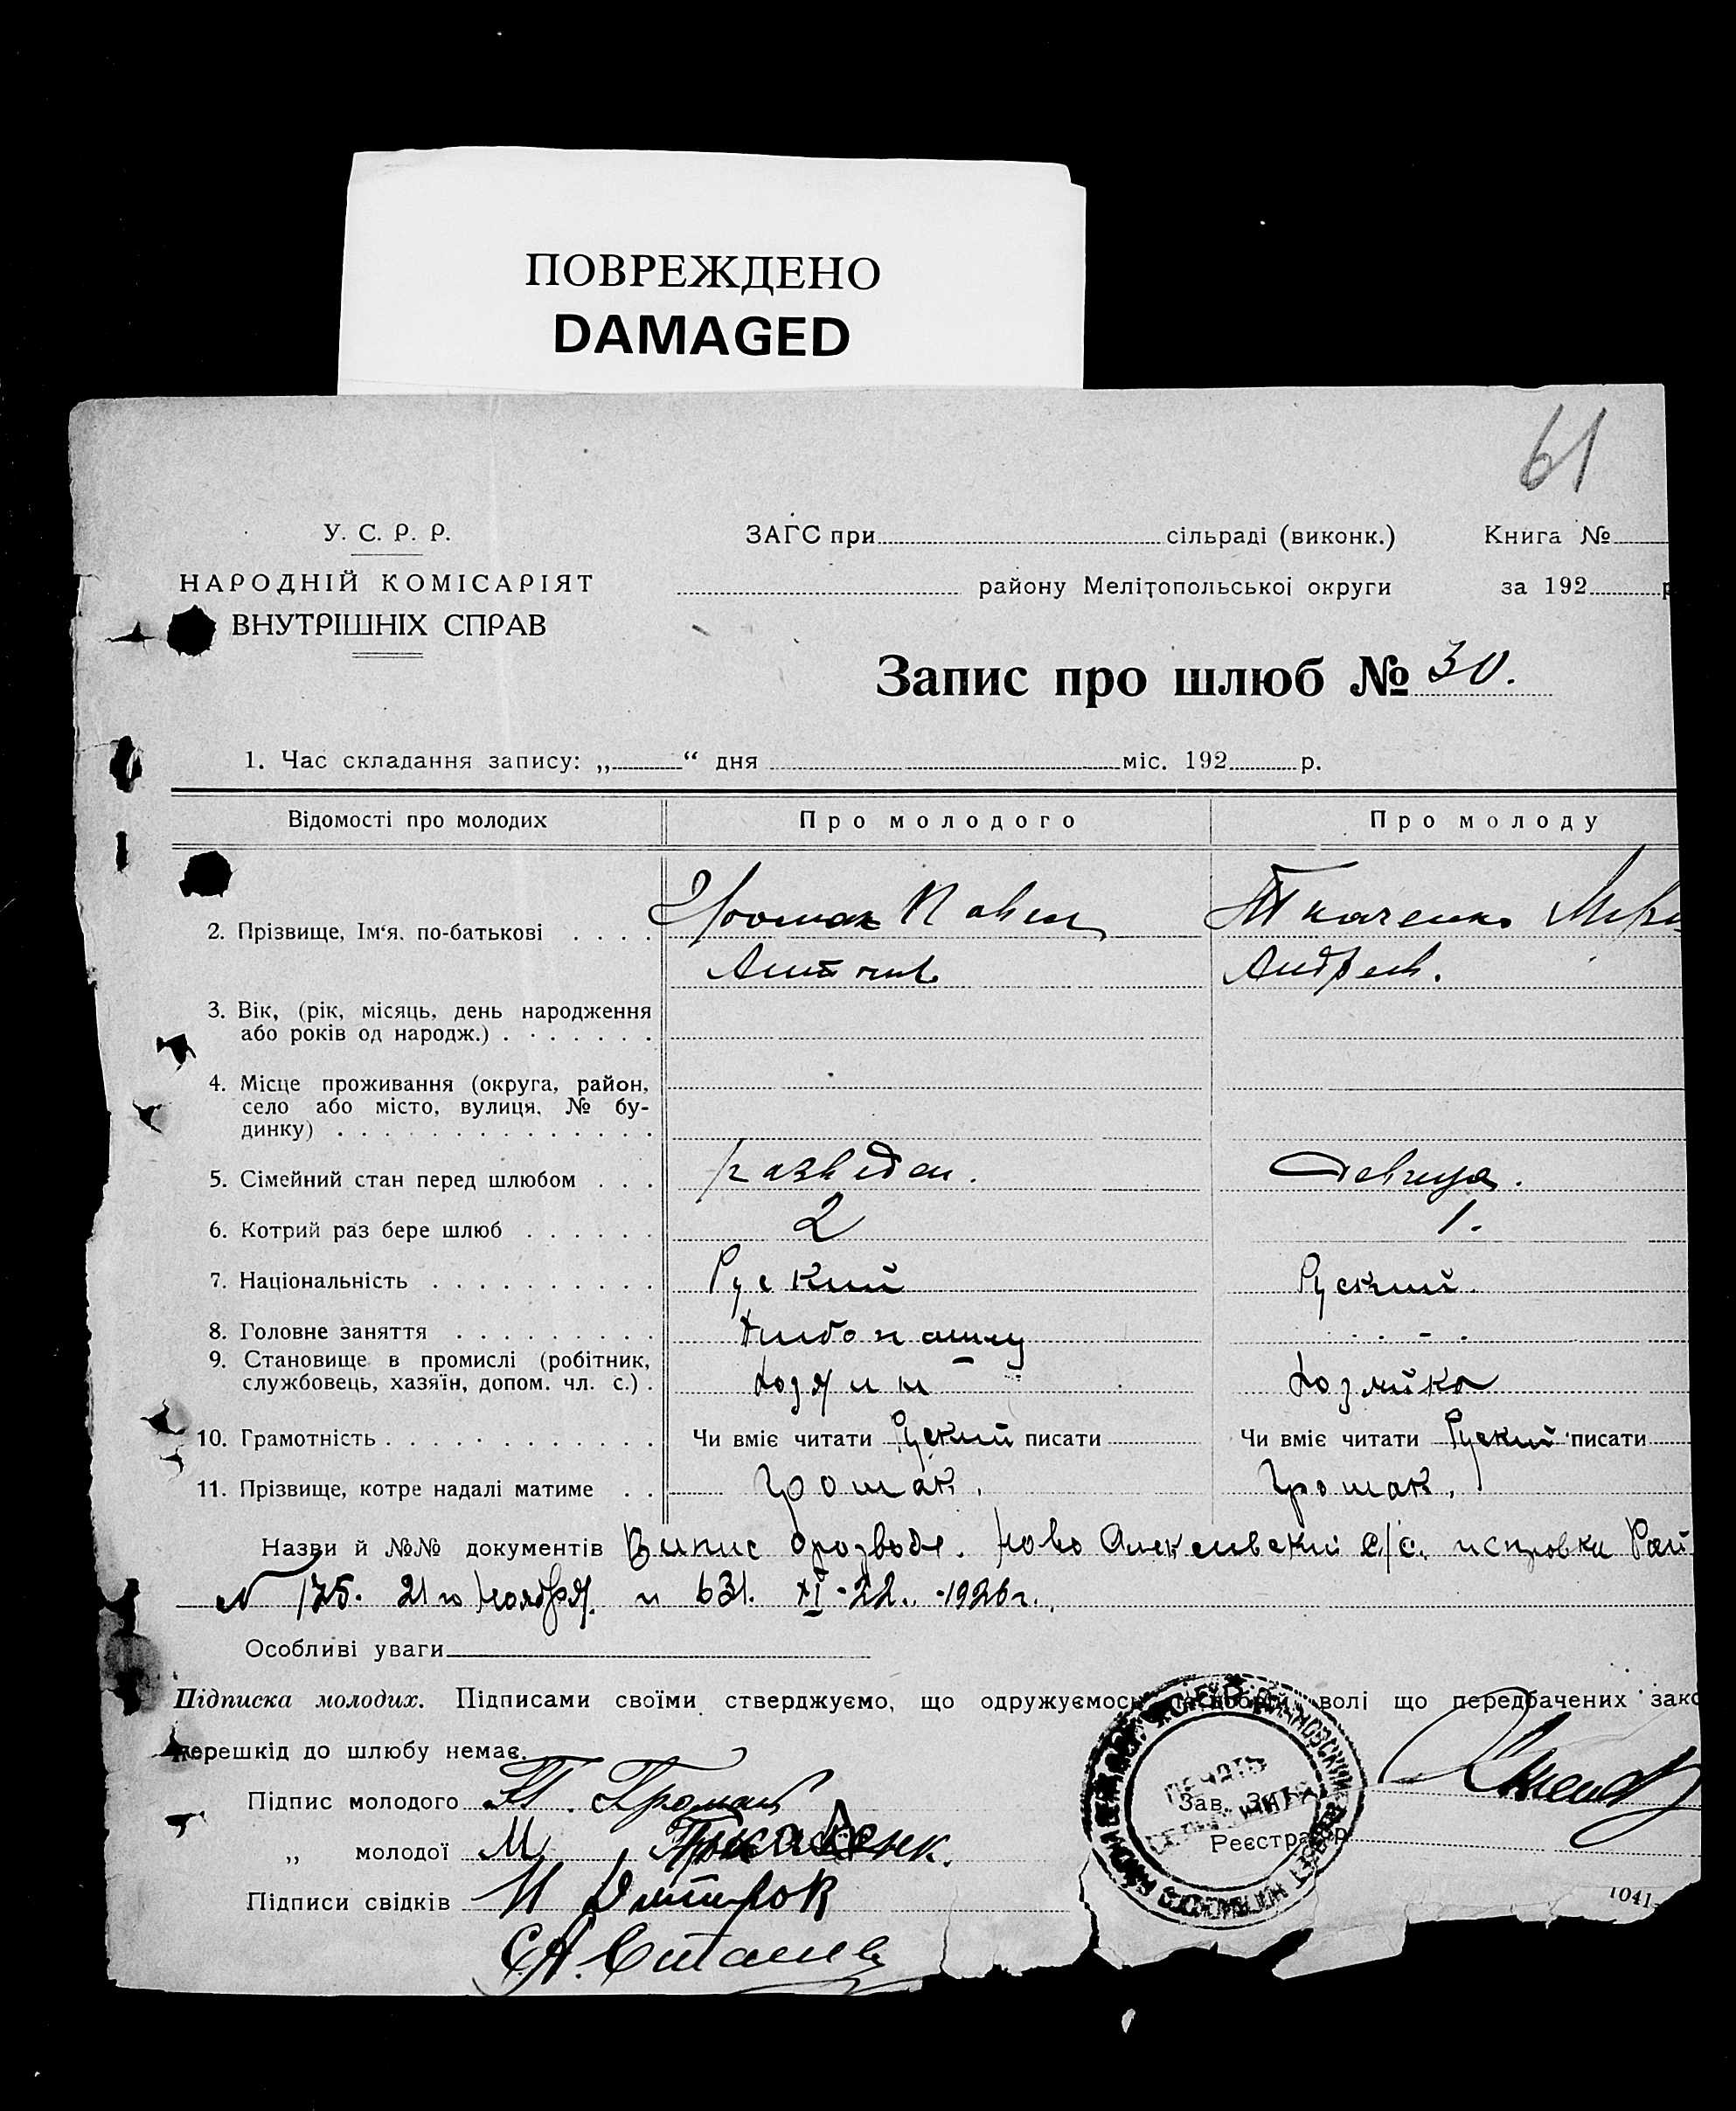 ПОВРЕЖДЕНО
DAMAGED
61
У. С. Р. Р.
НАРОДНІЙ КОМІСАРІЯТ
ВНУТРІШНІХ СПРАВ
ЗАГС при сільраді (виконк.) Книга №
району Мелітопольської округи за 192 р
Запис про шлюб № 30.
1. Час складання запису: „ “ дня міс. 192 р.
Відомості про молодих Про молодого Про молоду
2. Прізвище, Ім‘я, по-батькові Громак Павел Ткаченко
Антонов Андреев.
3. Вік, (рік, місяць, день народження
або років од народж.)
4. Місце проживання (округа, район,
село або місто, вулиця, № бу-
динку)
5. Сімейний стан перед шлюбом разведен. девица.
6. Котрий раз бере шлюб 2 1.
7. Національність Руский Руский.
8. Головне заняття
9. Становище в промислі (робітник,
службовець, хазяїн, допом. чл. с.) Хозяин Хозяйка
10. Грамотність Чи вміє читати Руский писати Чи вміє читати Руский писати
11. Прізвище, котре надалі матиме Громак. Громак.
Назви й №№ документів Випис о розводе. Ново
№ 175. 21го Ноября. и 631. XI-22. -1926г.
Особливі уваги
Підписка молодих. Підписами своїми стверджуємо, що одружуємось по добрій волі що передбачених зако
перешкід до шлюбу немає.
Підпис молодого П. Громак
„ молодої М.
Підписи свідків И Дмитрок
С.А.
Зав. ЗАГС
Реєстратор
1041